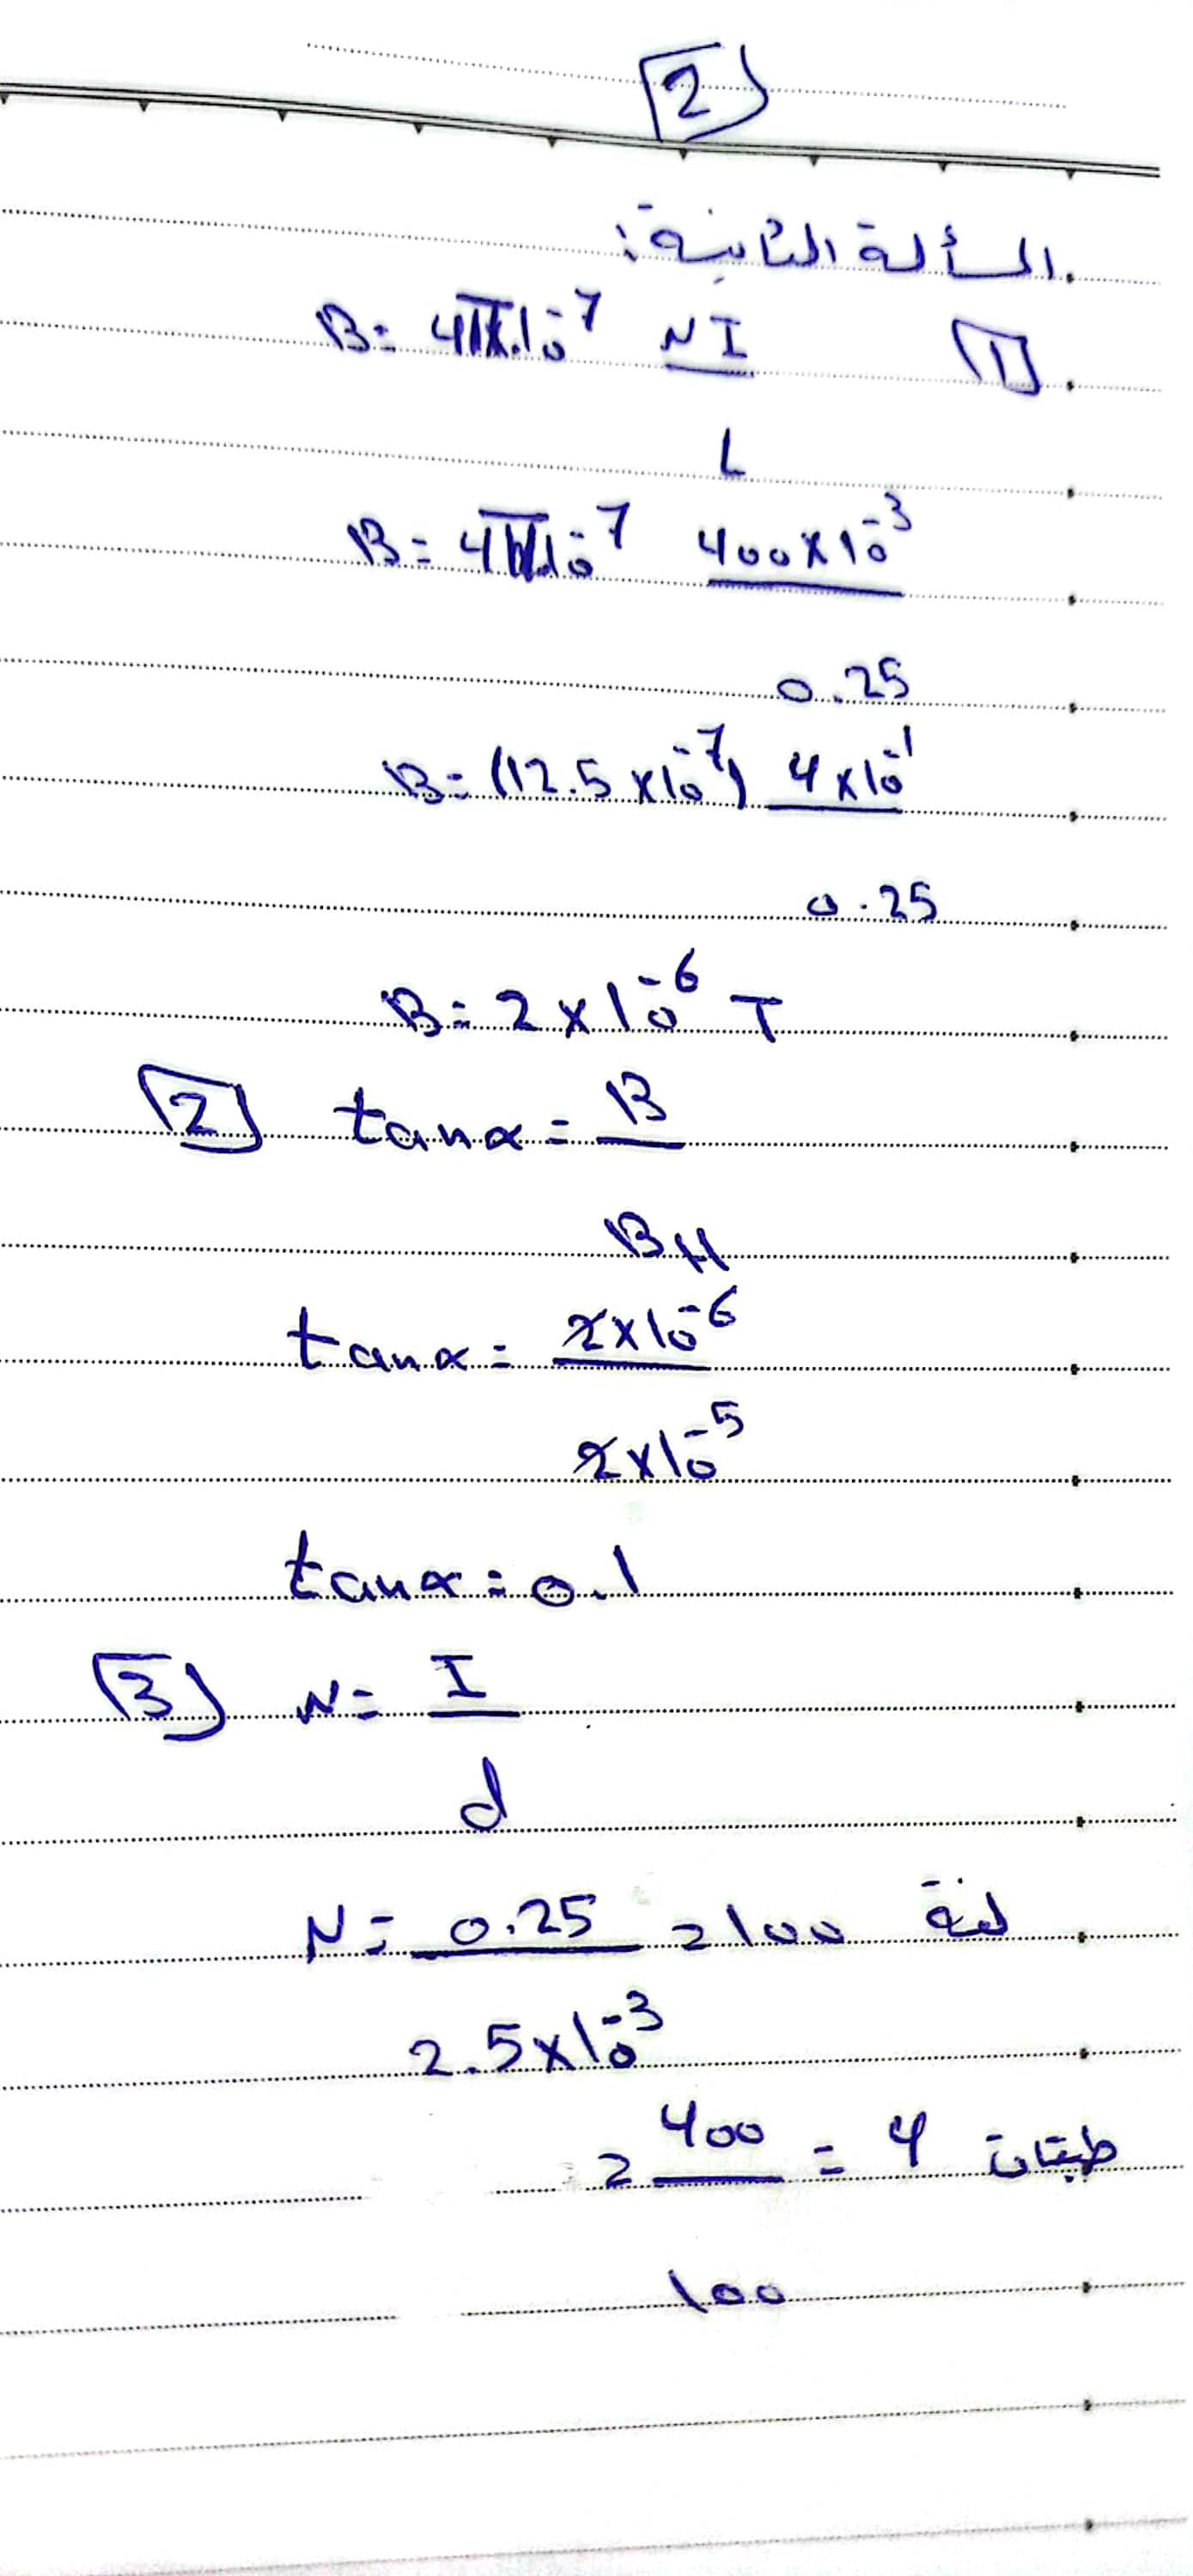 2
المسألة الثانية:
1 B = 4π×10⁻⁷ NI
L
B = 4π10⁻⁷ 400×10⁻³
0.25
B = (12.5×10⁻⁷) 4×10⁻¹
0.25
B = 2×10⁻⁶ T
2 tanα = B
BH
tanα = 2×10⁻⁶
2×10⁻⁵
tanα = 0.1
3 N = I
d
N = 0.25 = 100 لفة
2.5×10⁻³
= 400 = 4 طبقات
100